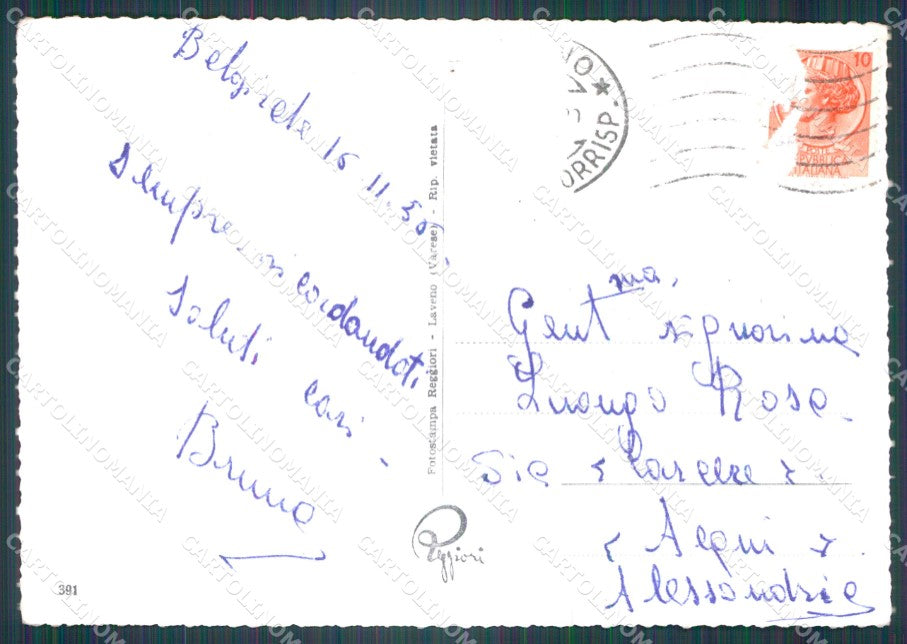 Belgirate 16 11.59
Sempre ricordandoti
Saluti cari
Bruna
Fotostampa Reggiori - Laveno (Varese) - Rip. vietata
Reggiori
391
ORRISP.
10
REPUBBLICA
ITALIANA
Gent ma.
signorina
Luongo Rosa
Via < Carcere >
< Acqui >
Alessandria
CARTOLINOMANIA